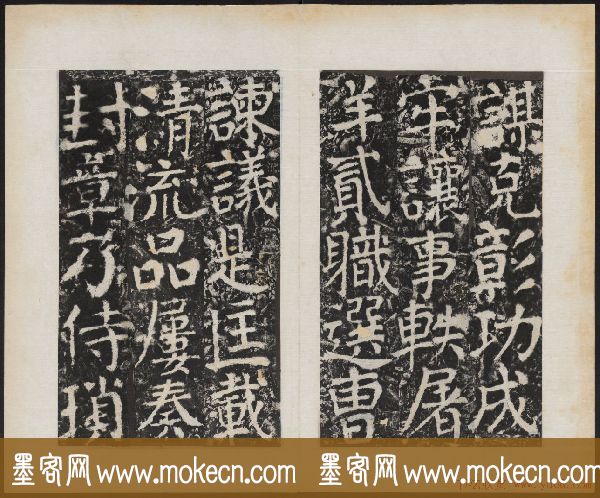 謀克彰功成
牢讓事軼屠
羊貳職選曹
諫議是匡載
清流品屢奏
封章乃侍瑣
墨客网 www.mokecn.com 墨客网 www.mokecn.com